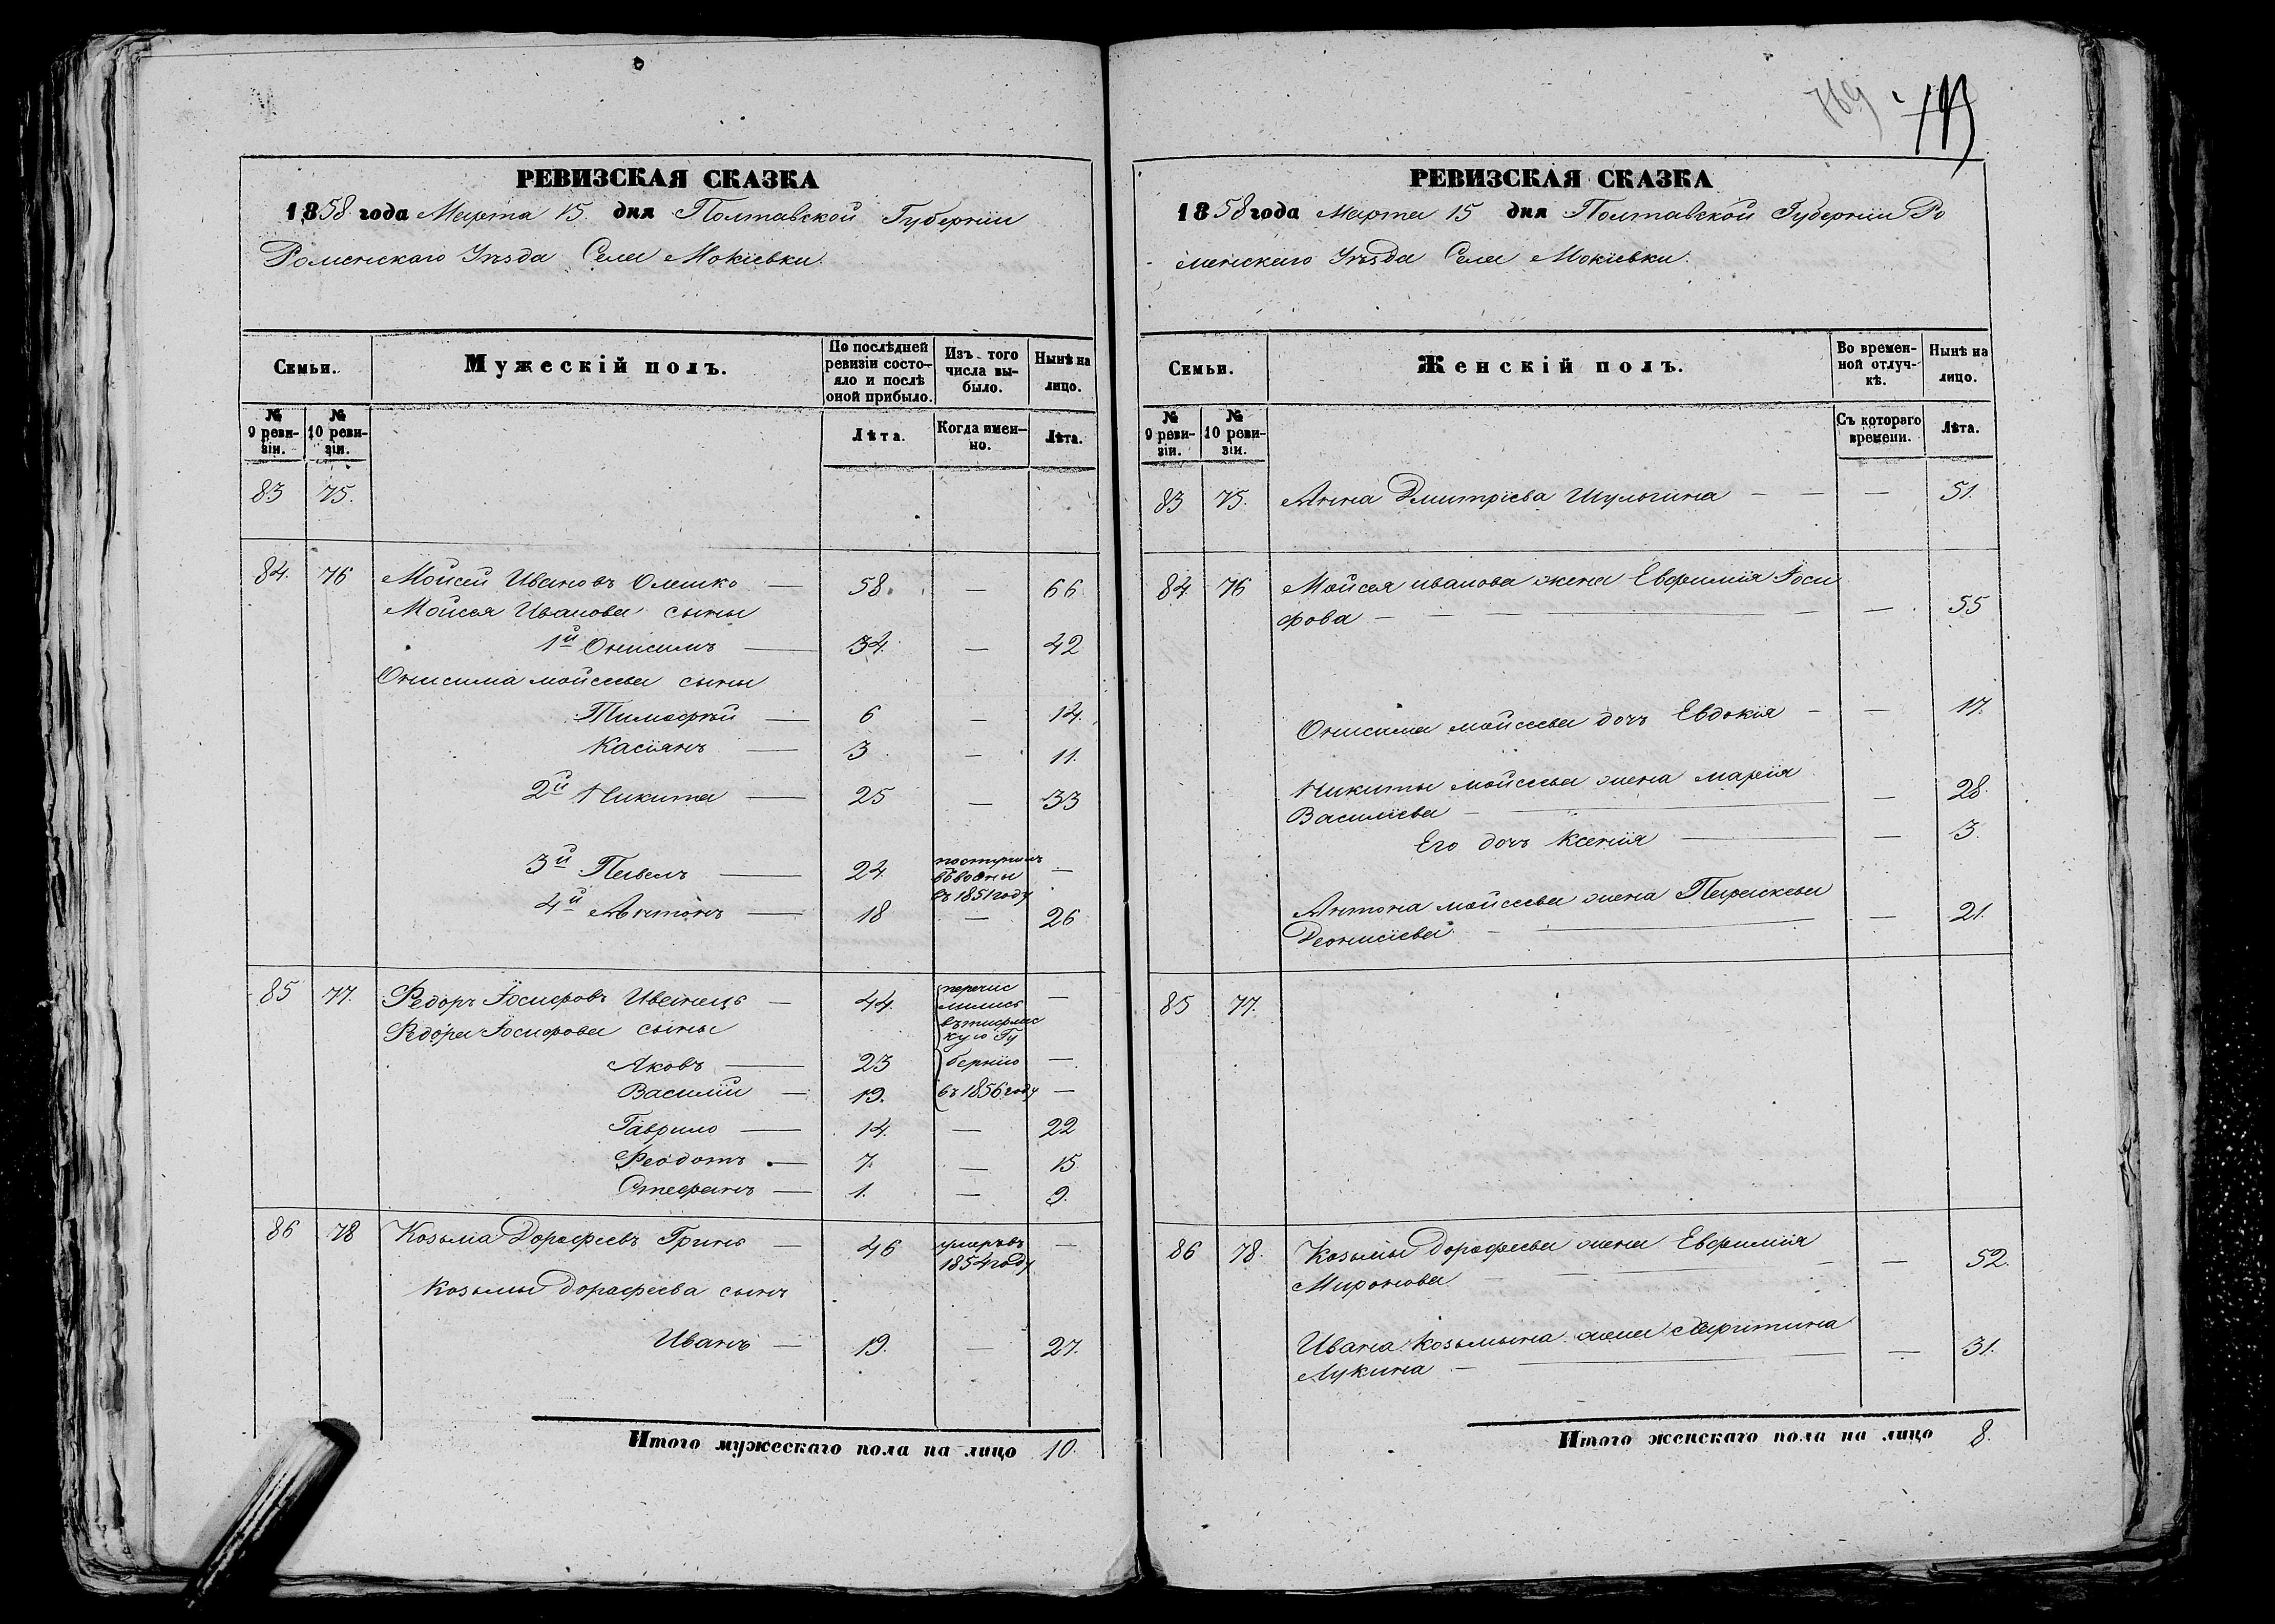 РЕВИЗСКАЯ СКАЗКА
1858 года Марта 15 дня Полтавской Губернии
Роменскаго Уѣзда Села Мокіевки.
Семьи.
Мужескій полъ.
По послѣдней
ревизіи состо-
яло и послѣ
оной прибыло.
Изъ того
числа вы-
было.
Нынѣ на
лицо.
№
9 реви-
зіи.
№
10 реви-
зіи.
Лѣта.
Когда имен-
но.
Лѣта.
83 75.
84. 76 Мойсей Ивановъ Олешко — 58. — 66
Мойсея Иванова сыны
1й Онисимъ — 34. — 42
Онисима мойсеева сыны
Тимофѣй — 6 — 14.
Касіянъ — 3 — 11.
2й Никита — 25 — 33
3й Павелъ — 24. поступилъ —
въ воины
въ 1851 году
4й Антонъ — 18 — 26
85 77. Федоръ Іосифовъ Иванецъ — 44. перечис —
лились
въ тифлис
кую Гу
Федора Іосифова сыны
Яковъ — 23 бернію —
Василій — 19. въ 1856 году —
Гаврило — 14. — 22
Феодотъ — 7. — 15
Стефанъ — 1. — 9.
86 78 Козьма Дорофеевъ Гринь — 46 умеръ въ —
1854 году
Козьмы Дорофеева сынъ
Иванъ — 19. — 27.
Итого мужескаго пола на лицо 10.
769
РЕВИЗСКАЯ СКАЗКА
1858 года Марта 15 дня Полтавской Губерніи Ро
менскаго Уѣзда Села Мокіевки.
Семьи.
Женскій полъ.
Во времен-
ной отлуч-
кѣ.
Нынѣ на
лицо.
№
9 реви-
зіи.
№
10 реви-
зіи.
Съ котораго
времени.
Лѣта.
83 75. Анна Дмитріева Шульгина — — — 51.
84. 76 Мойсея иванова жена Евфимія Іоси
фова — — — — — 55
Онисима мойсеева дочь Евдокія — — 17.
Никиты мойсеева жена марѳія
Василіева — — — 28.
Его дочь Ксенія — — 3.
Антона мойсеева жена Параскева
Деонисіева — — — 21.
85 77.
86 78. Козьмы Дорофеева жена Евфимія
Миронова — — — — 52.
Ивана Козьмына жена Мартина
Лукина — — — 31.
Итого женскаго пола на лицо 8.